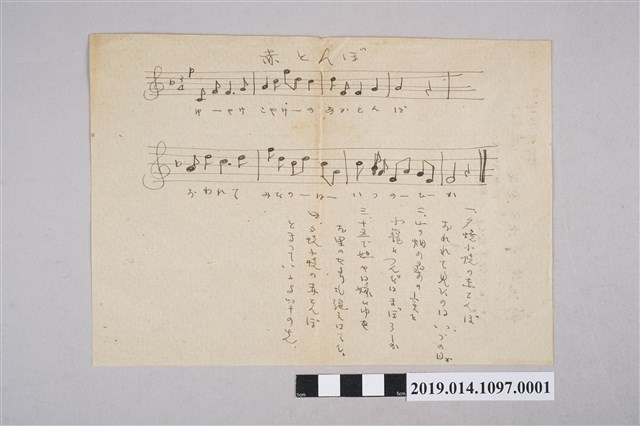 赤とんぼ
ゆーやけこやけーのあかとんぼ
おわれてみたのーはーいつのーひーか
一、夕焼小焼の赤とんぼ
おわれて見たのはいつの日か
二、山の畑の桑の実を
小籠につんだはまぼろしか
三、十五で姐やは嫁にゆき
お里のたよりも絶えはてた
四、夕焼小焼の赤とんぼ
とまっているよ竿の先
5cm
2019.014.1097.0001